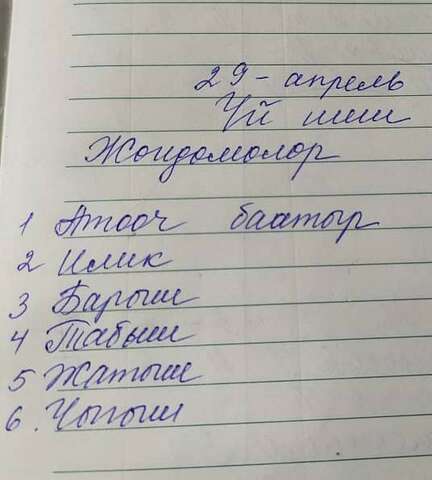 29-апрель
Үй иши
Жөндөмөлөр
1 Атооч баатыр
2 Илик
3 Барыш
4 Табыш
5 Жатыш
6. Чыгыш